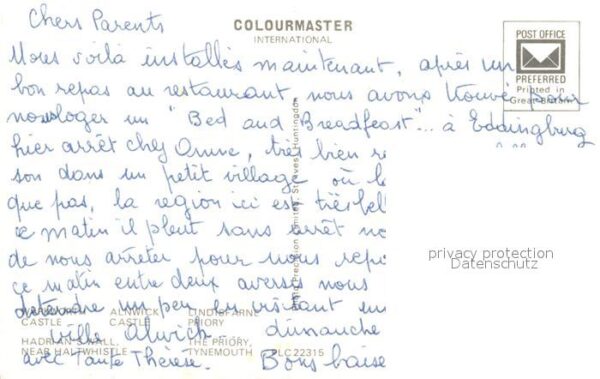 Chers Parents
COLOURMASTER
INTERNATIONAL
POST OFFICE
PREFERRED
Printed in
Great Britain
Nous voilà installés maintenant, après un
bon repas au restaurant nous avons trouvé pour
nous loger un "Bed and Breadfeast"... à Eddingburg
hier arrêt chez Anne, très bien re
son dans un petit village où le
que pas, la region ici est très bel
ce matin il pleut sans arrêt
de nous arrêter pour nous repo
ce matin entre deux averses nous
detendre un peu en visitant un
ville Alwick. dimanche
avec Tante Thérèse. Bons baise
CASTLE
ALNWICK
CASTLE
LINDISFARNE
PRIORY
HADRIAN'S WALL,
NEAR HALTWHISTLE
THE PRIORY,
TYNEMOUTH
PLC22315
Photo Precision Limited, St. Ives, Huntingdon
privacy protection
Datenschutz